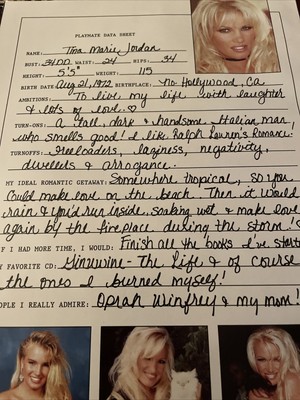 PLAYMATE DATA SHEET
NAME: Tina Marie Jordan
BUST: 34DD WAIST: 24 HIPS: 34
HEIGHT: 5'5" WEIGHT: 115
BIRTH DATE Aug 21, 1972 BIRTHPLACE: No. Hollywood, Ca
AMBITIONS: To live my life with laughter
& lots of love ♡
TURN-ONS: A tall, dark & handsome Italian man,
who smells good! I like Ralph Lauren's Romance.
TURNOFFS: Freeloaders, laziness, negativity,
dwellers & arrogance.
MY IDEAL ROMANTIC GETAWAY: Somewhere tropical, so you
could make love on the beach. Then it would
rain & you'd run inside soaking wet & make love
again by the fireplace during the storm!
IF I HAD MORE TIME, I WOULD: Finish all the books I've start
Y FAVORITE CD: Ginuwine - The Life & of course
the ones I burned myself!
OPLE I REALLY ADMIRE: Oprah Winfrey & my mom!